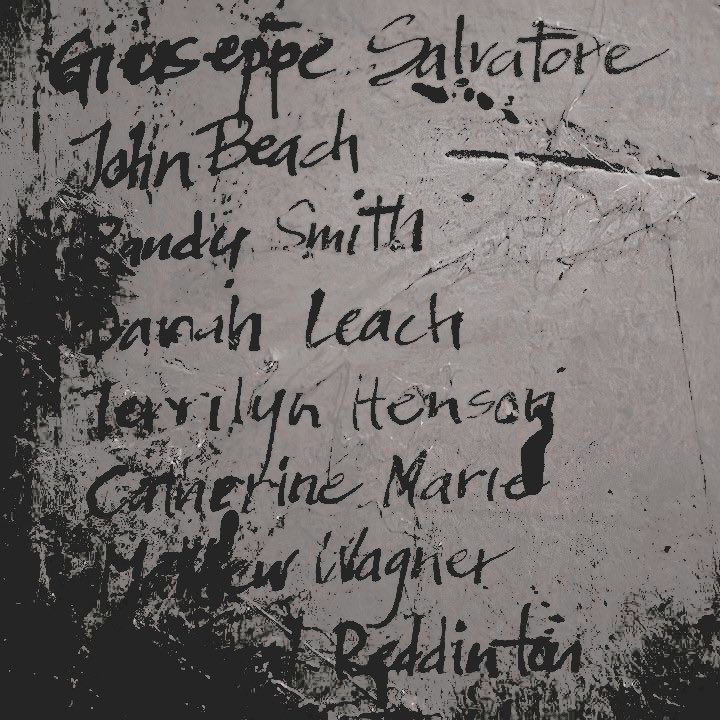 Giuseppe Salvatore
John Beach
Randy Smith
Danah Leach
Terrilyn Henson
Catherine Marie
Matthew Wagner
Reddinton